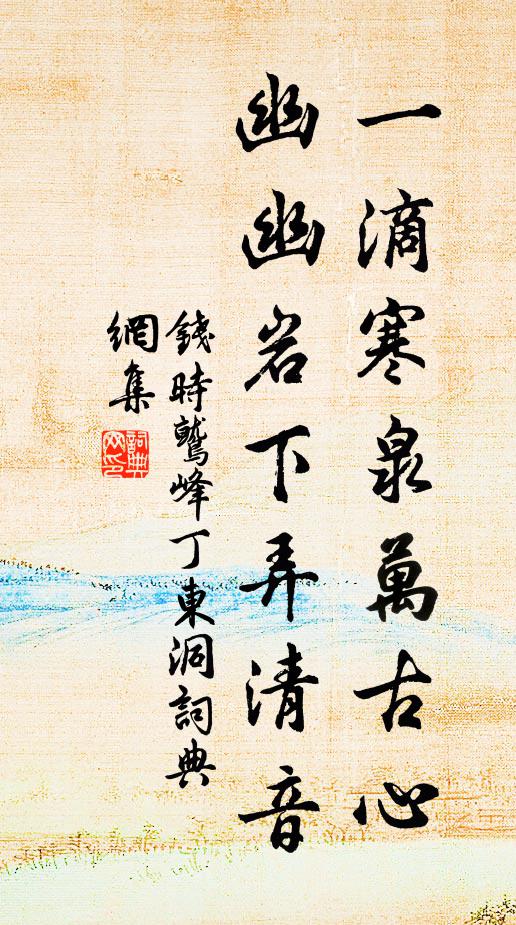 一滴寒泉萬古心
幽幽岩下弄清音
錢時鷲峰丁東洞詞典
網集
詞典
網印